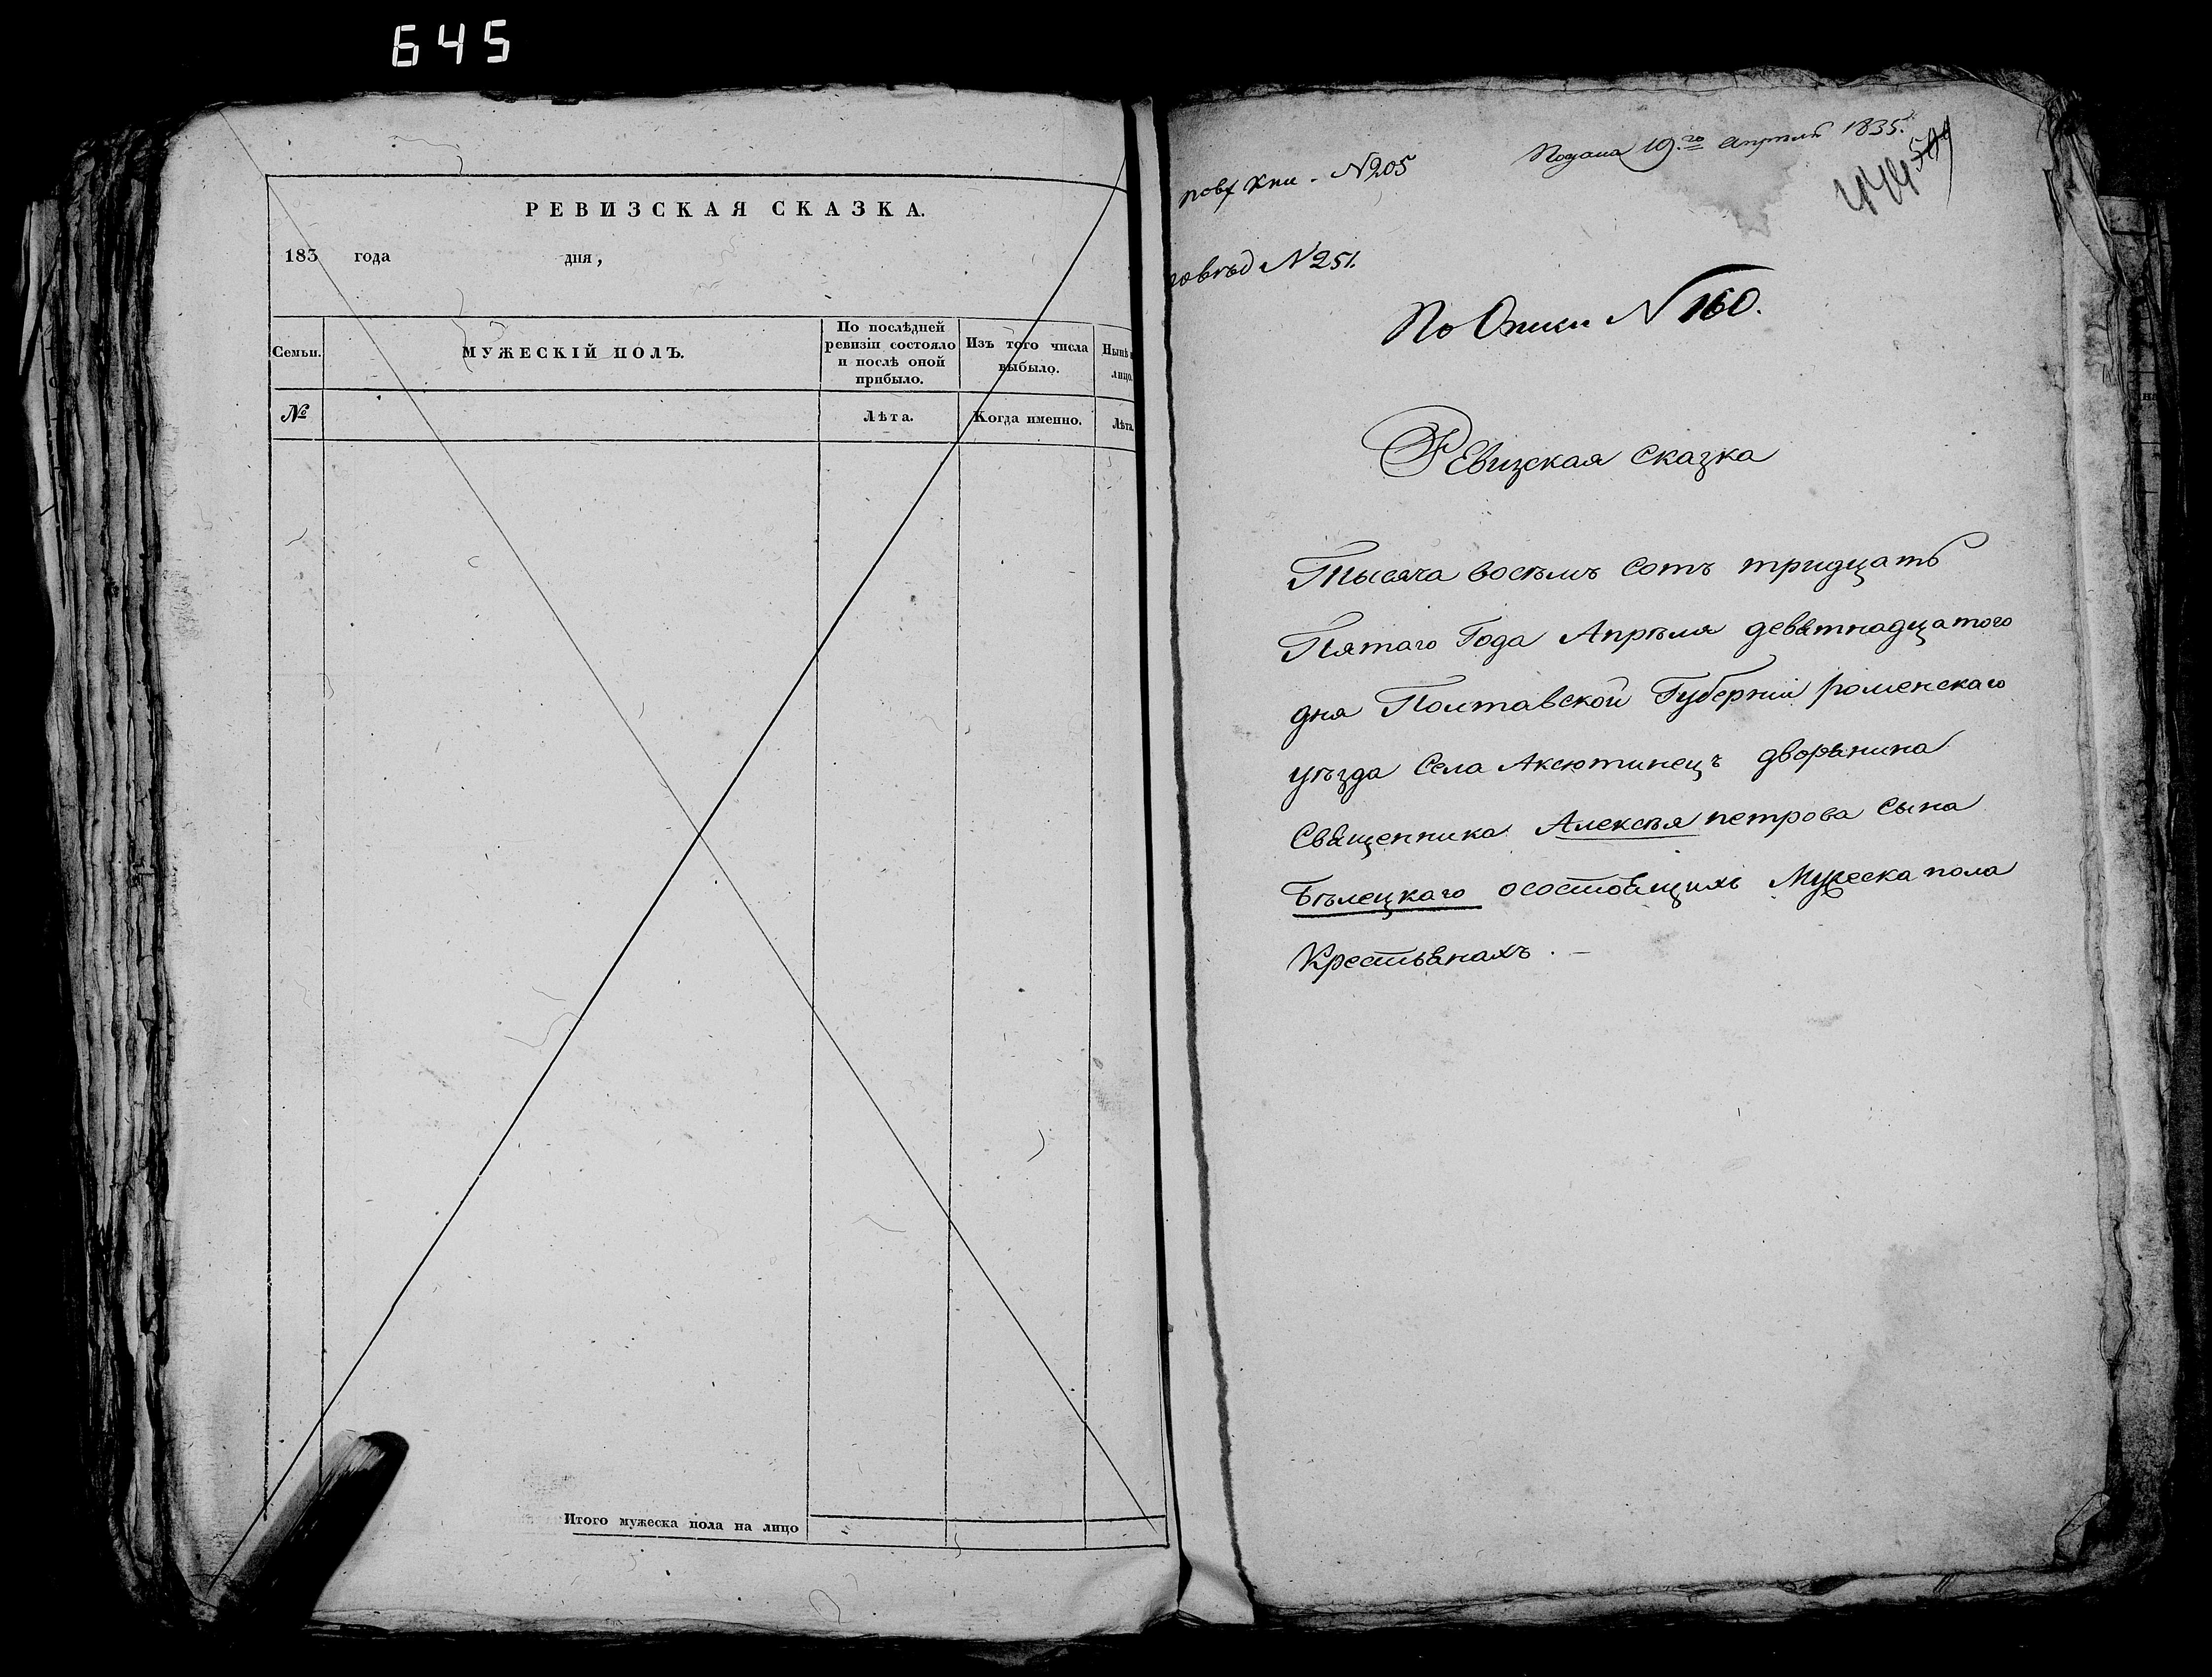 645
РЕВИЗСКАЯ СКАЗКА.
183 года дня,
Семьи.
МУЖЕСКІЙ ПОЛЪ.
По послѣдней
ревизіи состояло
и послѣ оной
прибыло.
Изъ того числа
выбыло.
Нынѣ
лицо.
№
Лѣта.
Когда именно.
Лѣта
Итого мужеска пола на лицо
Подана 19го апреля 1835.
кни. N 205
N 251.
По Описи N 160.
Ревизская сказка
Тысяча восѣмъ сотъ тридцать
Пятаго Года Апрѣля девятнадцатого
дня Полтавской Губерніи роменскаго
уѣзда Села Аксютинецъ дворянина
Священника Алексѣя петрова сына
Бѣлецкаго осостоящихъ Мужеска пола
Крестьянахъ. —